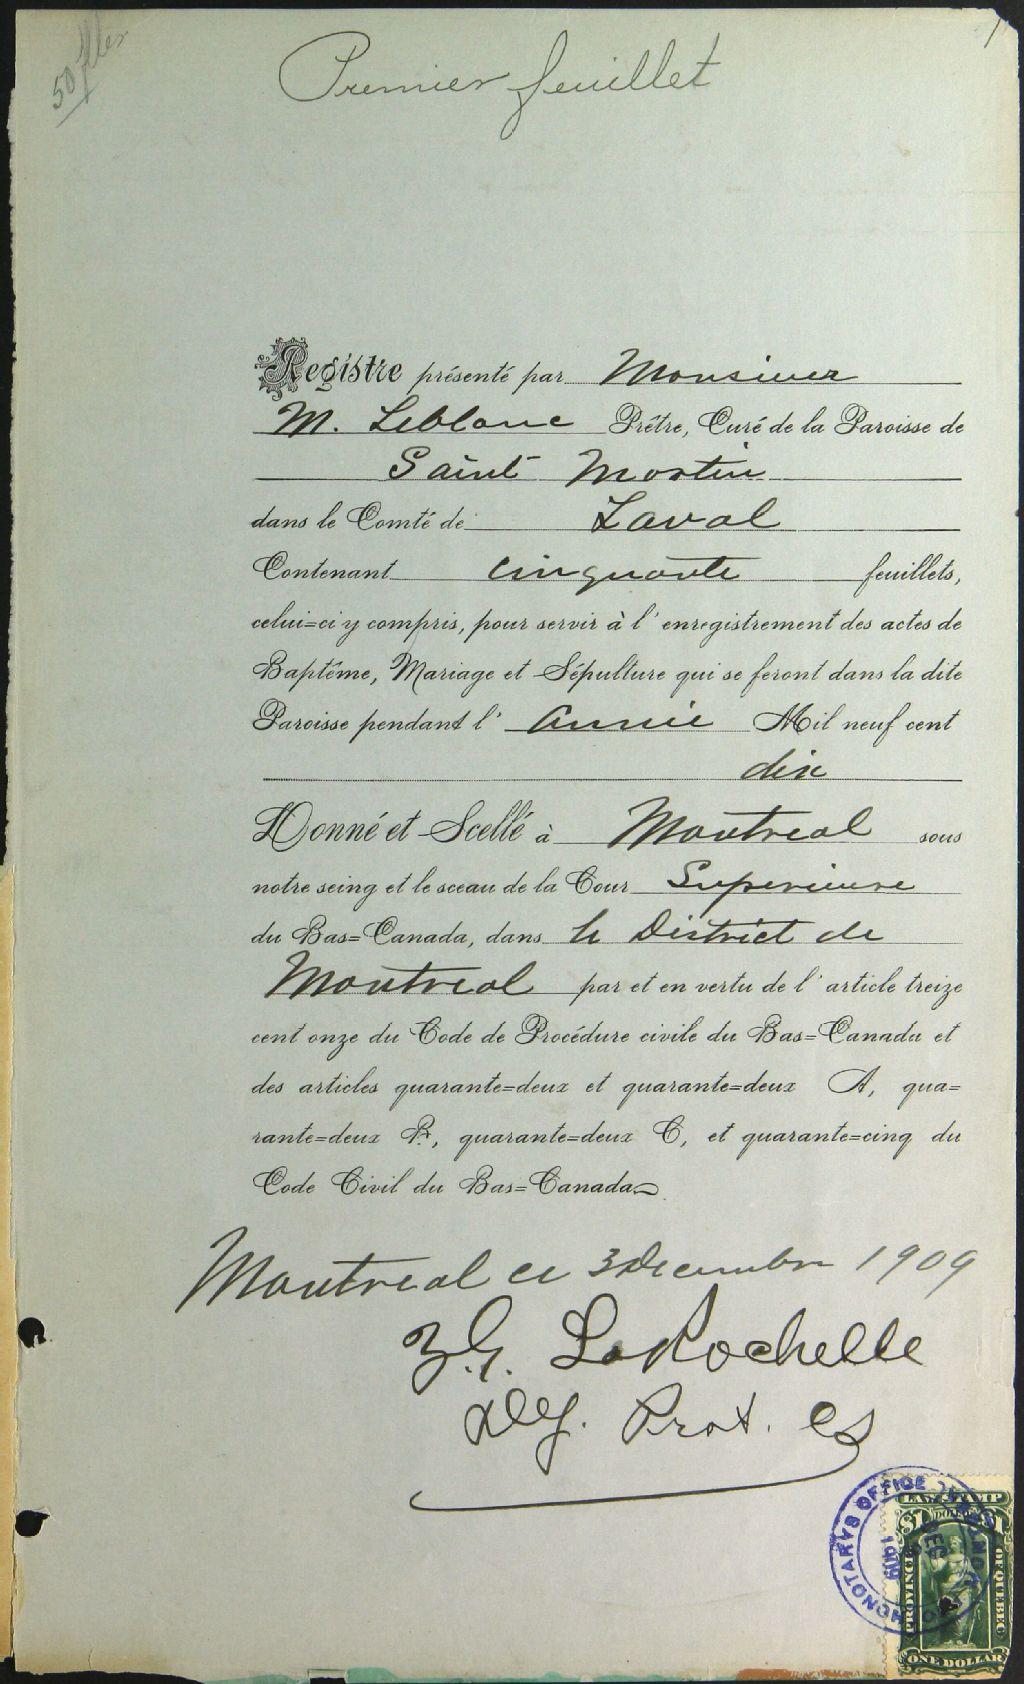 50 flles
1
Premier feuillet
Registre présenté par Monsieur
M. Leblanc Prêtre, Curé de la Paroisse de
Saint Martin
dans le Comté de Laval
Contenant cinquante feuillets,
celui=ci y compris, pour servir à l'enregistrement des actes de
Baptême, Mariage et Sépulture qui se feront dans la dite
Paroisse pendant l'année Mil neuf cent
dix
Donné et Scellé à Montreal sous
notre seing et le sceau de la Cour Superieure
du Bas=Canada, dans le District de
Montreal par et en vertu de l'article treize
cent onze du Code de Procédure civile du Bas=Canada et
des articles quarante=deux et quarante=deux A, qua=
rante=deux B, quarante=deux C, et quarante=cinq du
Code Civil du Bas=Canada
Montreal ce 3 Decembre 1909
Z.G. LaRochelle
Dep. Prot. CS
PROTHONOTARYS OFFICE
MONTREAL
DEC
1909
LAW STAMP
$1 DOLLAR $1
PROVINCE OF QUEBEC
ONE DOLLAR